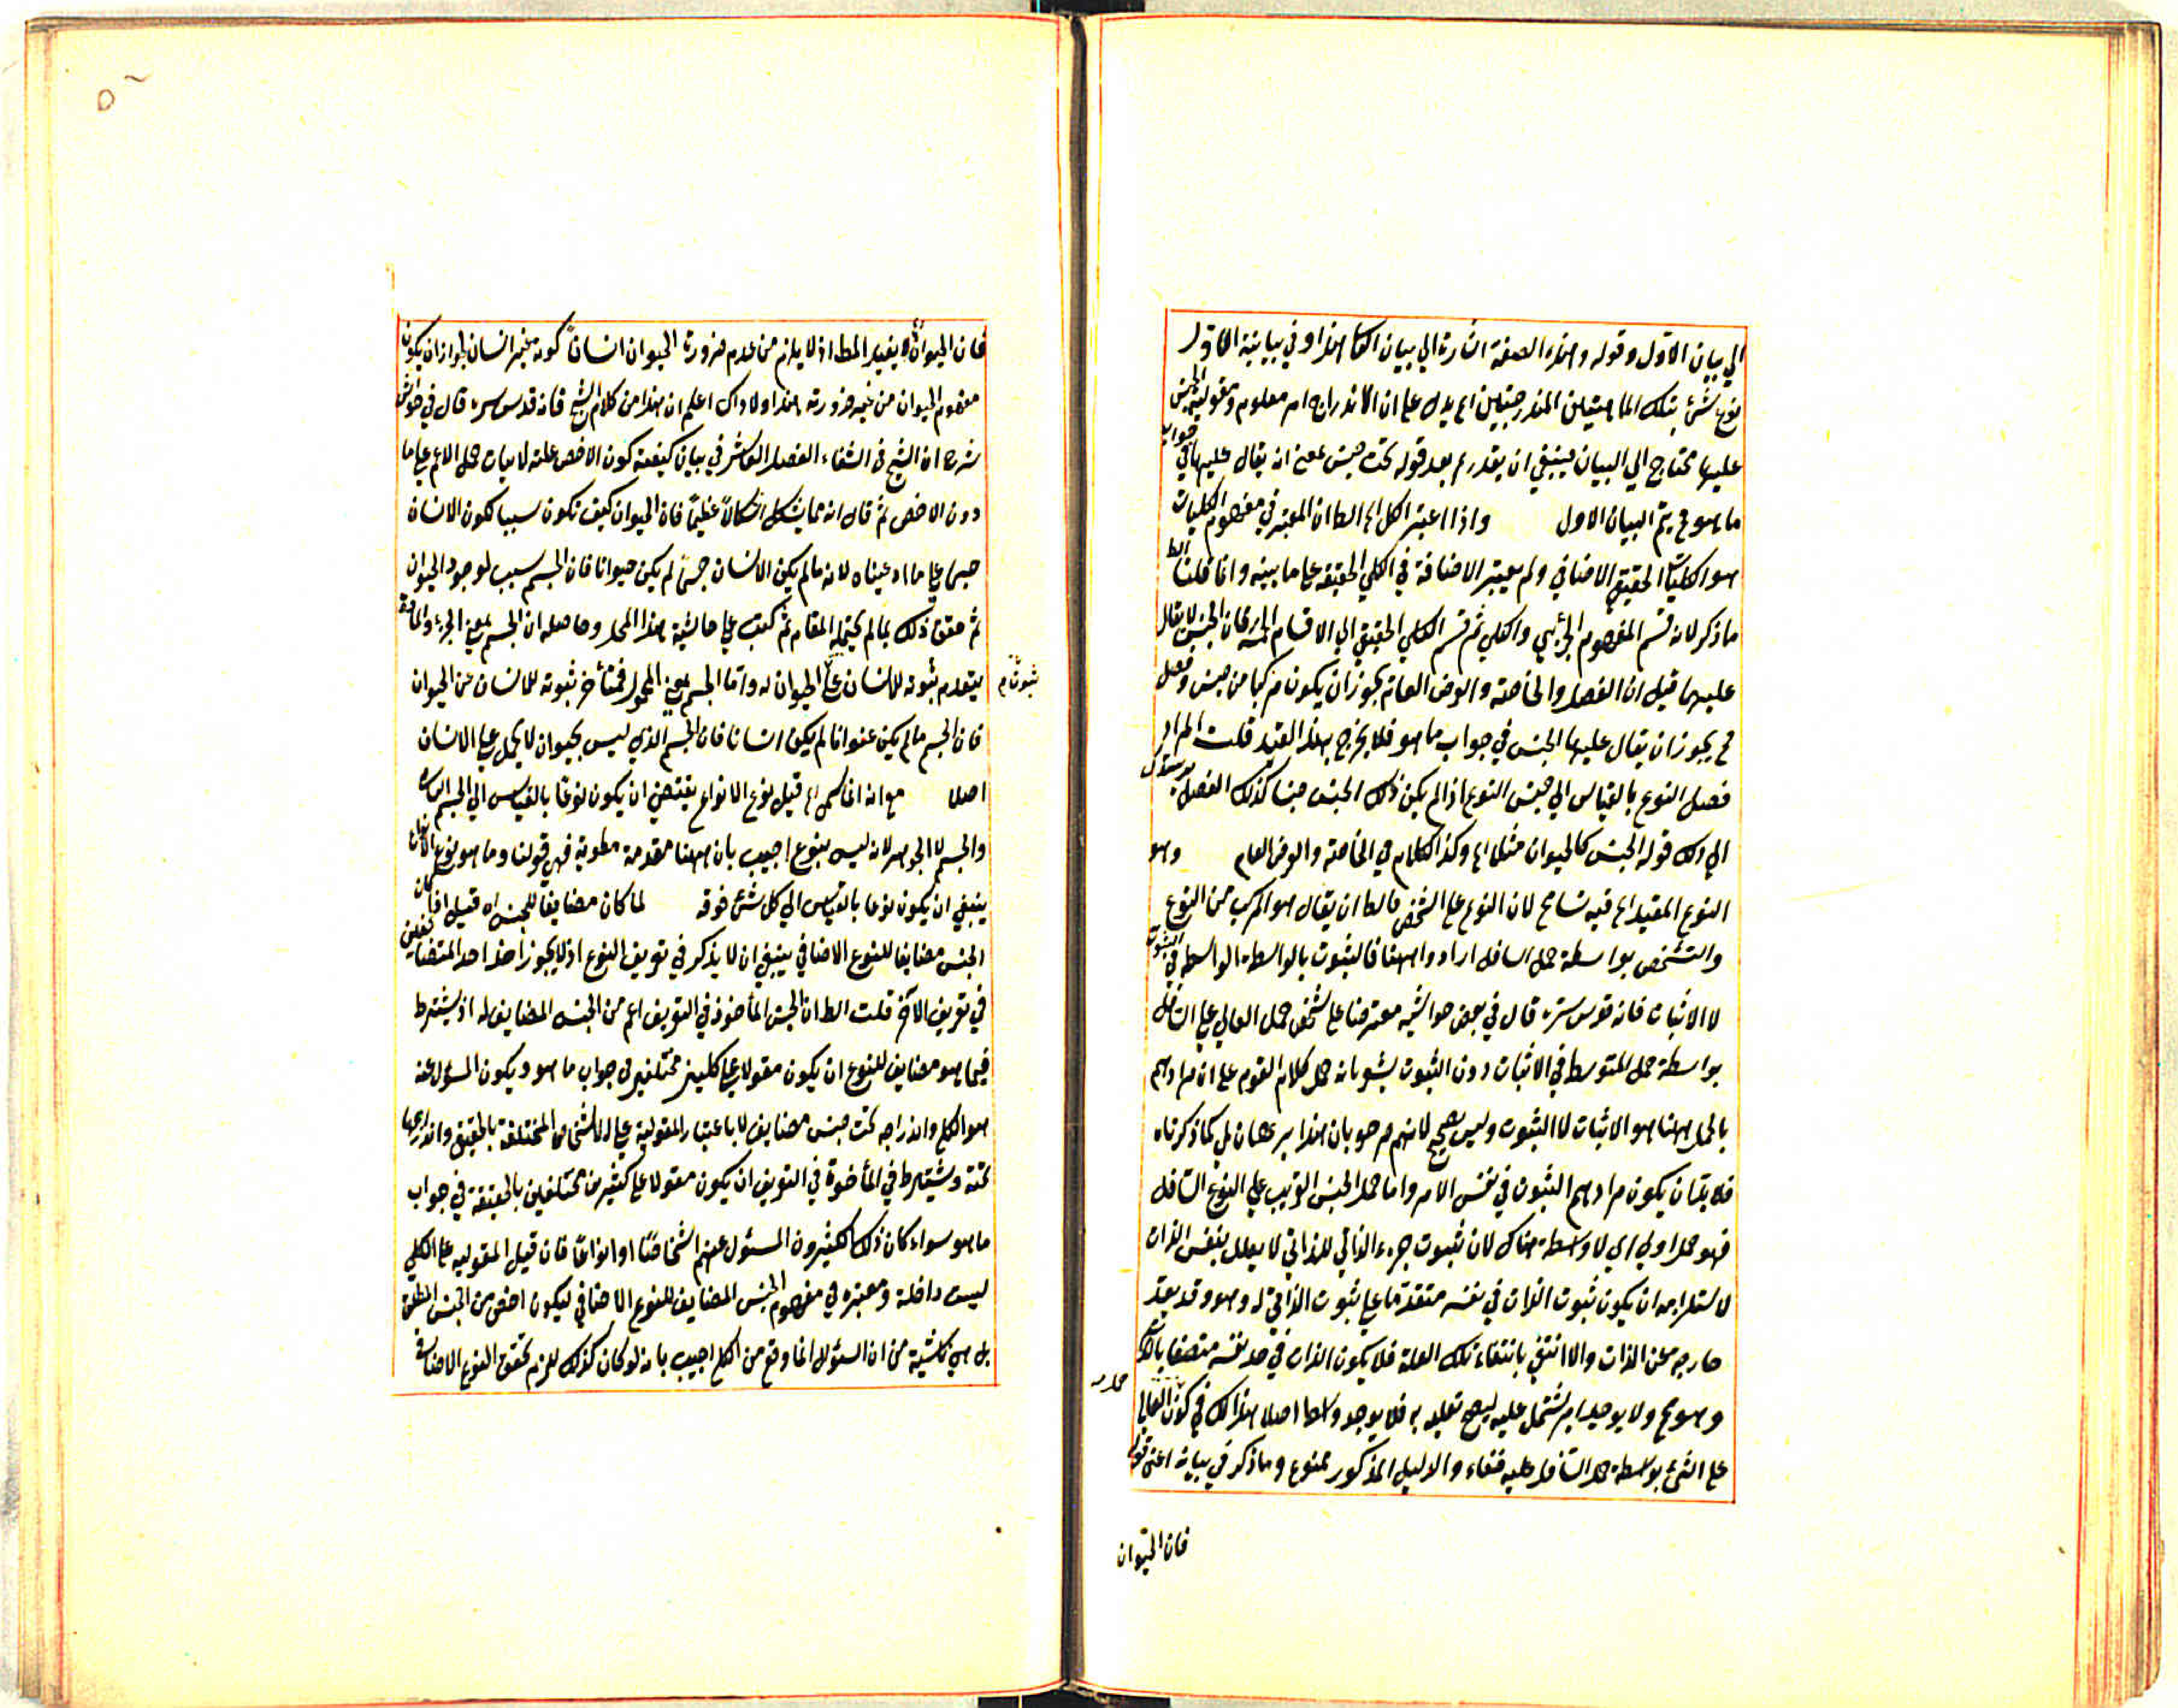 الي بيان الاول وقوله وهذه الصفة اشارة الي بيان الثا هذا وفي بيانية الاول
نوع شئ بتلك الماهيتين المندرجتين اه يدل على ان الاندراج امر معلوم ومقولية الجنس
عليها محتاج الي البيان فينبغي ان يقدر بعد قوله تحت جنس معين انه يقال عليها في جواب
ما هو فح يتم البيان الاول واذا اعتبر الكل اه الظ ان المعتبر في مفهوم الكليات
هو الكليات الحقيقي الاضافي ولم يعتبر الاضافة في الكلي الحقيقة على ما بينه وانما قلنا الظ
ما ذكر لانه قسم المفهوم الجزئي والكلي ثم قسم الكلي الحقيقي الي الاقسام الخمسة فان الجنس لا يقال
عليها قيل ان الفصل والخاصة والعرض العام يجوز ان يكون مركبا من جنس وفصل
فح يجوز ان يقال عليها الجنس في جواب ما هو فلا يخرج بهذا القيد قلت المراد
فصل النوع بالقياس الي جنس النوع اذا لم يكن ذلك الجنس جنسا كذلك الفصل يرشدك
الي ذلك قوله الجنس كالحيوان مثلا اه وكذا الكلام في الخاصة والعرض العام وهو
النوع المقيد اه فيه تسامح لان النوع على الشخص فالظ ان يقال هو المركب من النوع
والتشخص بواسطة حمل السافل ارادوا ههنا فالثبوت بالواسطة الواسطة في الثبوت
لا الاثبات فانه قدس سره قال في بعض حواشيه معترضا على شخص حمل العالي على السافل
بواسطة حمل المتوسط في الاثبات دون الثبوت يشير بانه حمل كلام القوم على ان مرادهم
بالحمل ههنا هو الاثبات لا الثبوت وليس بصحيح لانهم صرحوا بان هذا برهان بل كما ذكرناه
فلا بد ان يكون مرادهم الثبوت في نفس الامر واما حمل الجنس القريب على النوع السافل
فهو حمل اولي اي لا واسطة هناك لان ثبوت جزء الذاتي للذاتي لا يعلل بنفس الذات
لاستلزامه ان يكون ثبوت الذات في نفسه متقدما على ثبوت الذاتي له وهو
خارجه عن الذات والا انتفى بانتفاء تلك العلة فلا يكون الذات في حد نفسه متصفا
وهو مح ولا يوجد امر يشتمل عليه ليصح تعليله به فلا يوجد واسطة اصلا هنالك في كون العالي
على الشئ بواسطة حمل السافل عليه خفاء والدليل المذكور ممنوع وما ذكر في بيانه اعني قوله
فان الحيوان
فان الحيوان لا يفيد المط اذ لا يلزم من عدم ضرورة الحيوان انسانا كونه غير انسان لجواز ان يكون
مفهوم الحيوان من غير ضرورته هذا ولا ذاك اعلم ان هذا من كلام الشيخ فانه قدس سره قال في حواشي
شرح ان الشيخ في الشفاء الفصل العاشر في بيان كيفية كون الاخص علة لاثبات حمل الاعم على ما
دون الاخص ثم قال انه مما يشكل اشكالا عظيما فان الحيوان كيف تكون سببا لكون الانسان
جسما على ما ادعيناه لانه ما لم يكن الانسان جسما لم يكن حيوانا فان الجسم سبب لوجود الحيوان
ثم حقق ذلك بما لم يحتمله المقام ثم كتب على حاشية هذا المحل وحاصله ان الجسم بمعنى الجزء والمادة
يتقدم ثبوته للانسان على الحيوان له واما الجسم بمعنى المحمول فمتأخر ثبوته للانسان عن الحيوان
ثبوت م
فان الجسم ما لم يكن حيوانا لم يكن انسانا فان الجسم الذي ليس بحيوان لا يحمل على الانسان
اصلا مع انه انما سمي اه قيل نوع الانواع يقتضي ان يكون نوعا بالقياس الي الجسم النامي
والجسم لا الجوهر لانه ليس بنوع اجيب بان ههنا مقدمة مطوية فهي قولنا وما هو نوع الانواع
ينبغي ان يكون نوعا بالقياس الي كل شئ فوقه لما كان مضايفا للجنس اه قيل اذا كان
الجنس مضايفا للنوع الاضافي ينبغي ان لا يذكر في تعريف النوع اذ لا يجوز اخذ احد المتضايفين
في تعريف الآخر قلت الظ ان الجنس المأخوذ في التعريف اعم من الجنس المضايف له اذ يشترط
فيما هو مضايف للنوع ان يكون مقولا على كليين مختلفين في جواب ما هو ويكون المسؤل عنه
هو الكلي واندراجه تحت جنس مضايف لا باعتبار المقولية على الاشخاص المختلفة بالحقيقة واندراجها
تحته ويشترط في المأخوذة في التعريف ان يكون مقولا على كثيرين مختلفين بالحقيقة في جواب
ما هو سواء كان ذلك الكثيرون المسئول عنهم اشخاصا او انواعا فان قيل المقوليه على الكلي
ليست داخلة ومعتبرة في مفهوم الجنس المضايف للنوع الاضافي ليكون اخص من الجنس المطلق
بل هي ناشية من ان السؤال انما وقع من الكلي اجيب بانه لو كان كذلك للزم تحقق النوع الاضافي